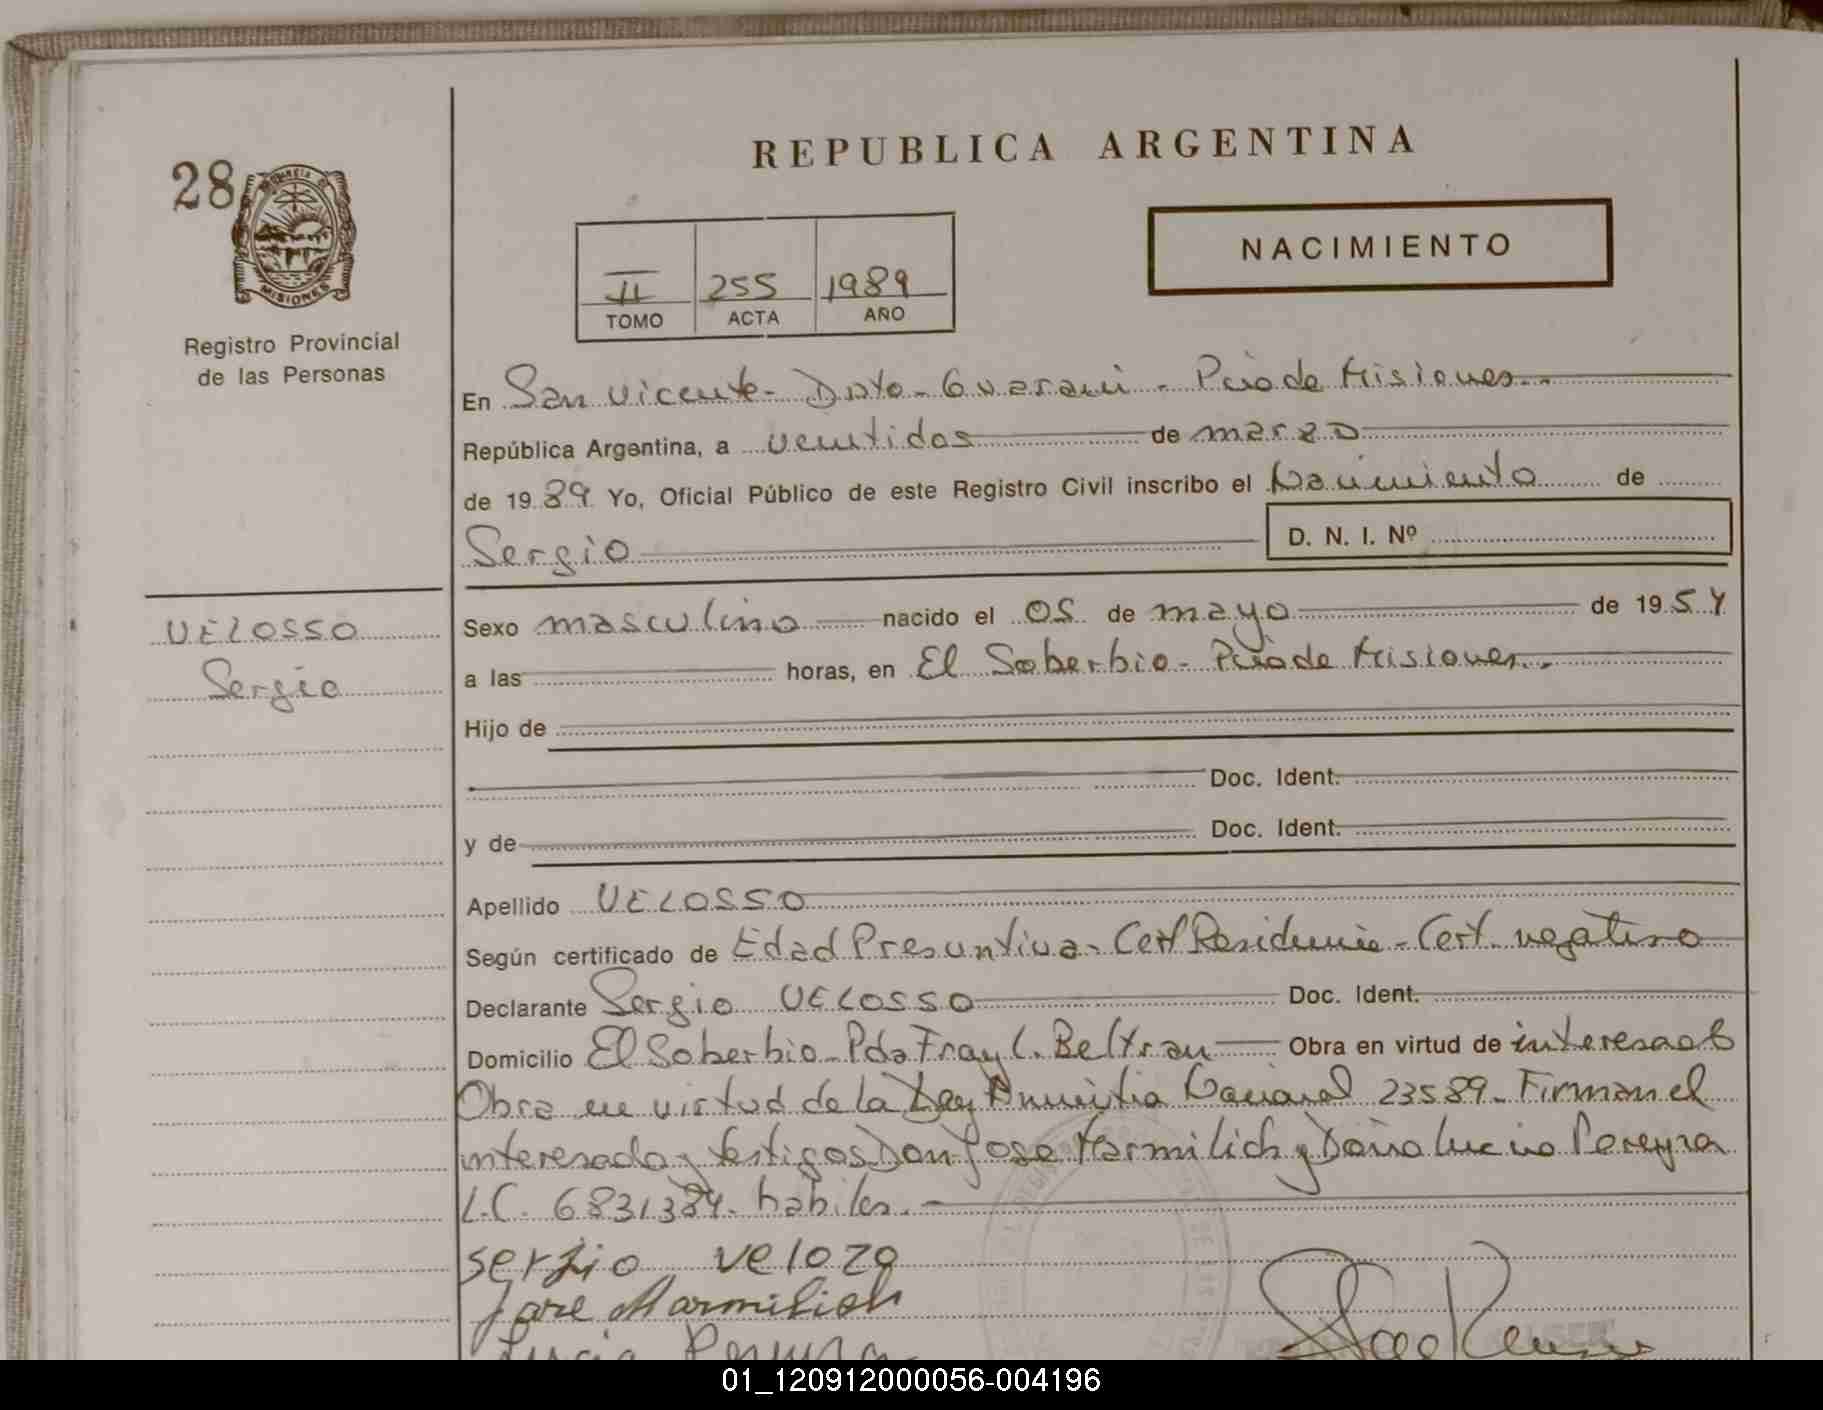 REPUBLICA ARGENTINA
28
PROVINCIA DE
MISIONES
Registro Provincial
de las Personas
II 255 1989
TOMO ACTA AÑO
NACIMIENTO
En San Vicente - Dpto - Guarani - Pcia de Misiones -.
República Argentina, a veintidos de marzo
de 1989 Yo, Oficial Público de este Registro Civil inscribo el Nacimiento de
Sergio D. N. I. Nº
VELOSSO
Sergio
Sexo masculino nacido el 05 de mayo de 1954
a las horas, en El Soberbio - Pcia de Misiones -.
Hijo de
Doc. Ident.
y de Doc. Ident.
Apellido VELOSSO
Según certificado de Edad Presuntiva - Cert Residencia - Cert. negativo
Declarante Sergio VELOSSO Doc. Ident.
Domicilio El Soberbio - Pda Fray L. Beltran Obra en virtud de interesado
Obra en virtud de la Ley Amnistia Nacional 23589 - Firman el
interesado y testigos Don Jose Marmilich y Doña Lucia Pereyra
L.C. 6831384 - habiles. -
serjio velozo
Jose Marmilich
Lucia Pereyra
01_120912000056-004196